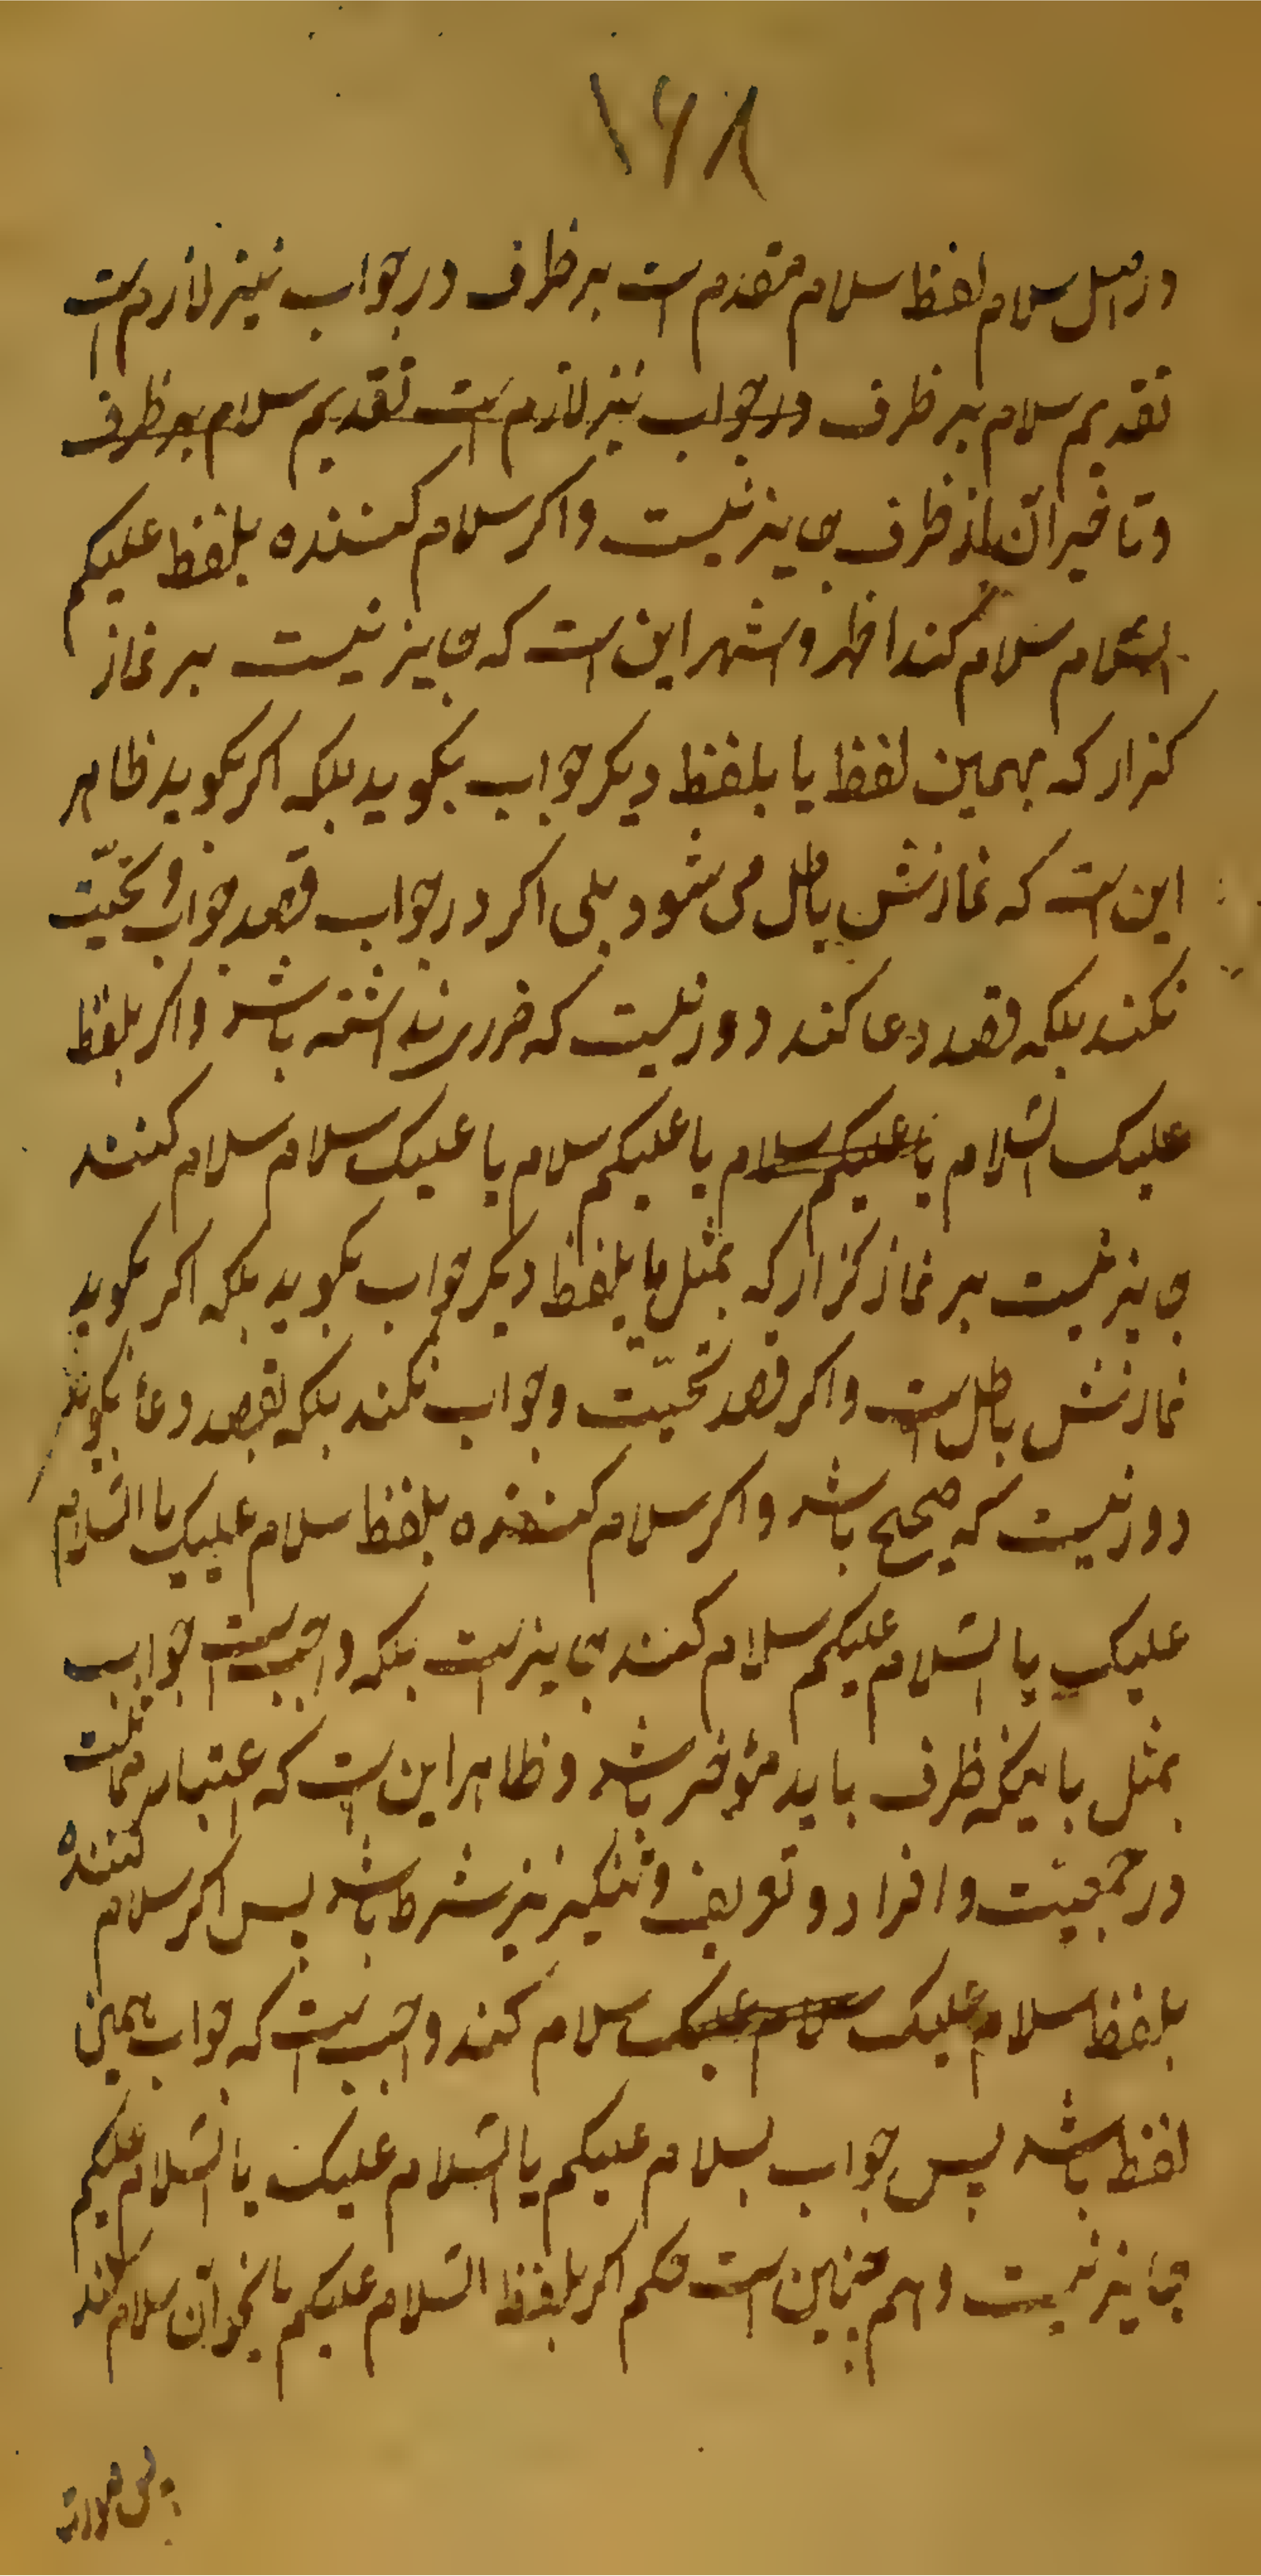 ۱۶۸
در اصل سلام لفظ سلام مقدم است بر ظرف در جواب نیز لازم است
تقدیم سلام بر ظرف در جواب نیز لازم است تقدیم سلام بر ظرف
وتاخیر ان از ظرف جایز نیست واکر سلام کننده بلفظ علیکم
السّلام سلام کند اظهر واشهر این است که جایز نیست بر نماز
کزار که بهمین لفظ یا بلفظ دیکر جواب بکوید بلکه اکر بکوید ظاهر
این است که نمازش باطل می شود بلی اکر در جواب قصد جواب و تحیّت
نکند بلکه قصد دعا کند دور نیست که ضرر نداشته باشد واکر بلفظ
علیک السّلام یا علیکم سلام یا علیکم سلام یا علیک سلام سلام کنند
جایز نیست بر نماز کزار که بمثل یا بلفظ دیکر جواب بکوید بلکه اکر بکوید
نمازش باطل است واکر قصد تحیّت وجواب نکند بلکه بقصد دعا بکوید
دور نیست که صحیح باشد واکر سلام کننده بلفظ سلام علیک یا السّلام
علیک یا السّلام علیکم سلام کند جایز است بلکه واجب است جواب
بمثل باینکه ظرف باید مؤخر باشد وظاهر این است که اعتبار مماثلت
در جمعیّت وافراد وتعریف وتنکیر نیز شرط باشد پس اکر سلام کننده
بلفظ سلام علیک سلام علیک سلام کند واجب است که جواب بهمین
لفظ باشد پس جواب بسلام علیکم یا السّلام علیک یا السّلام علیکم
جایز نیست وهم چنین است حکم اکر بلفظ السّلام علیکم یا نحو آن سلام کند